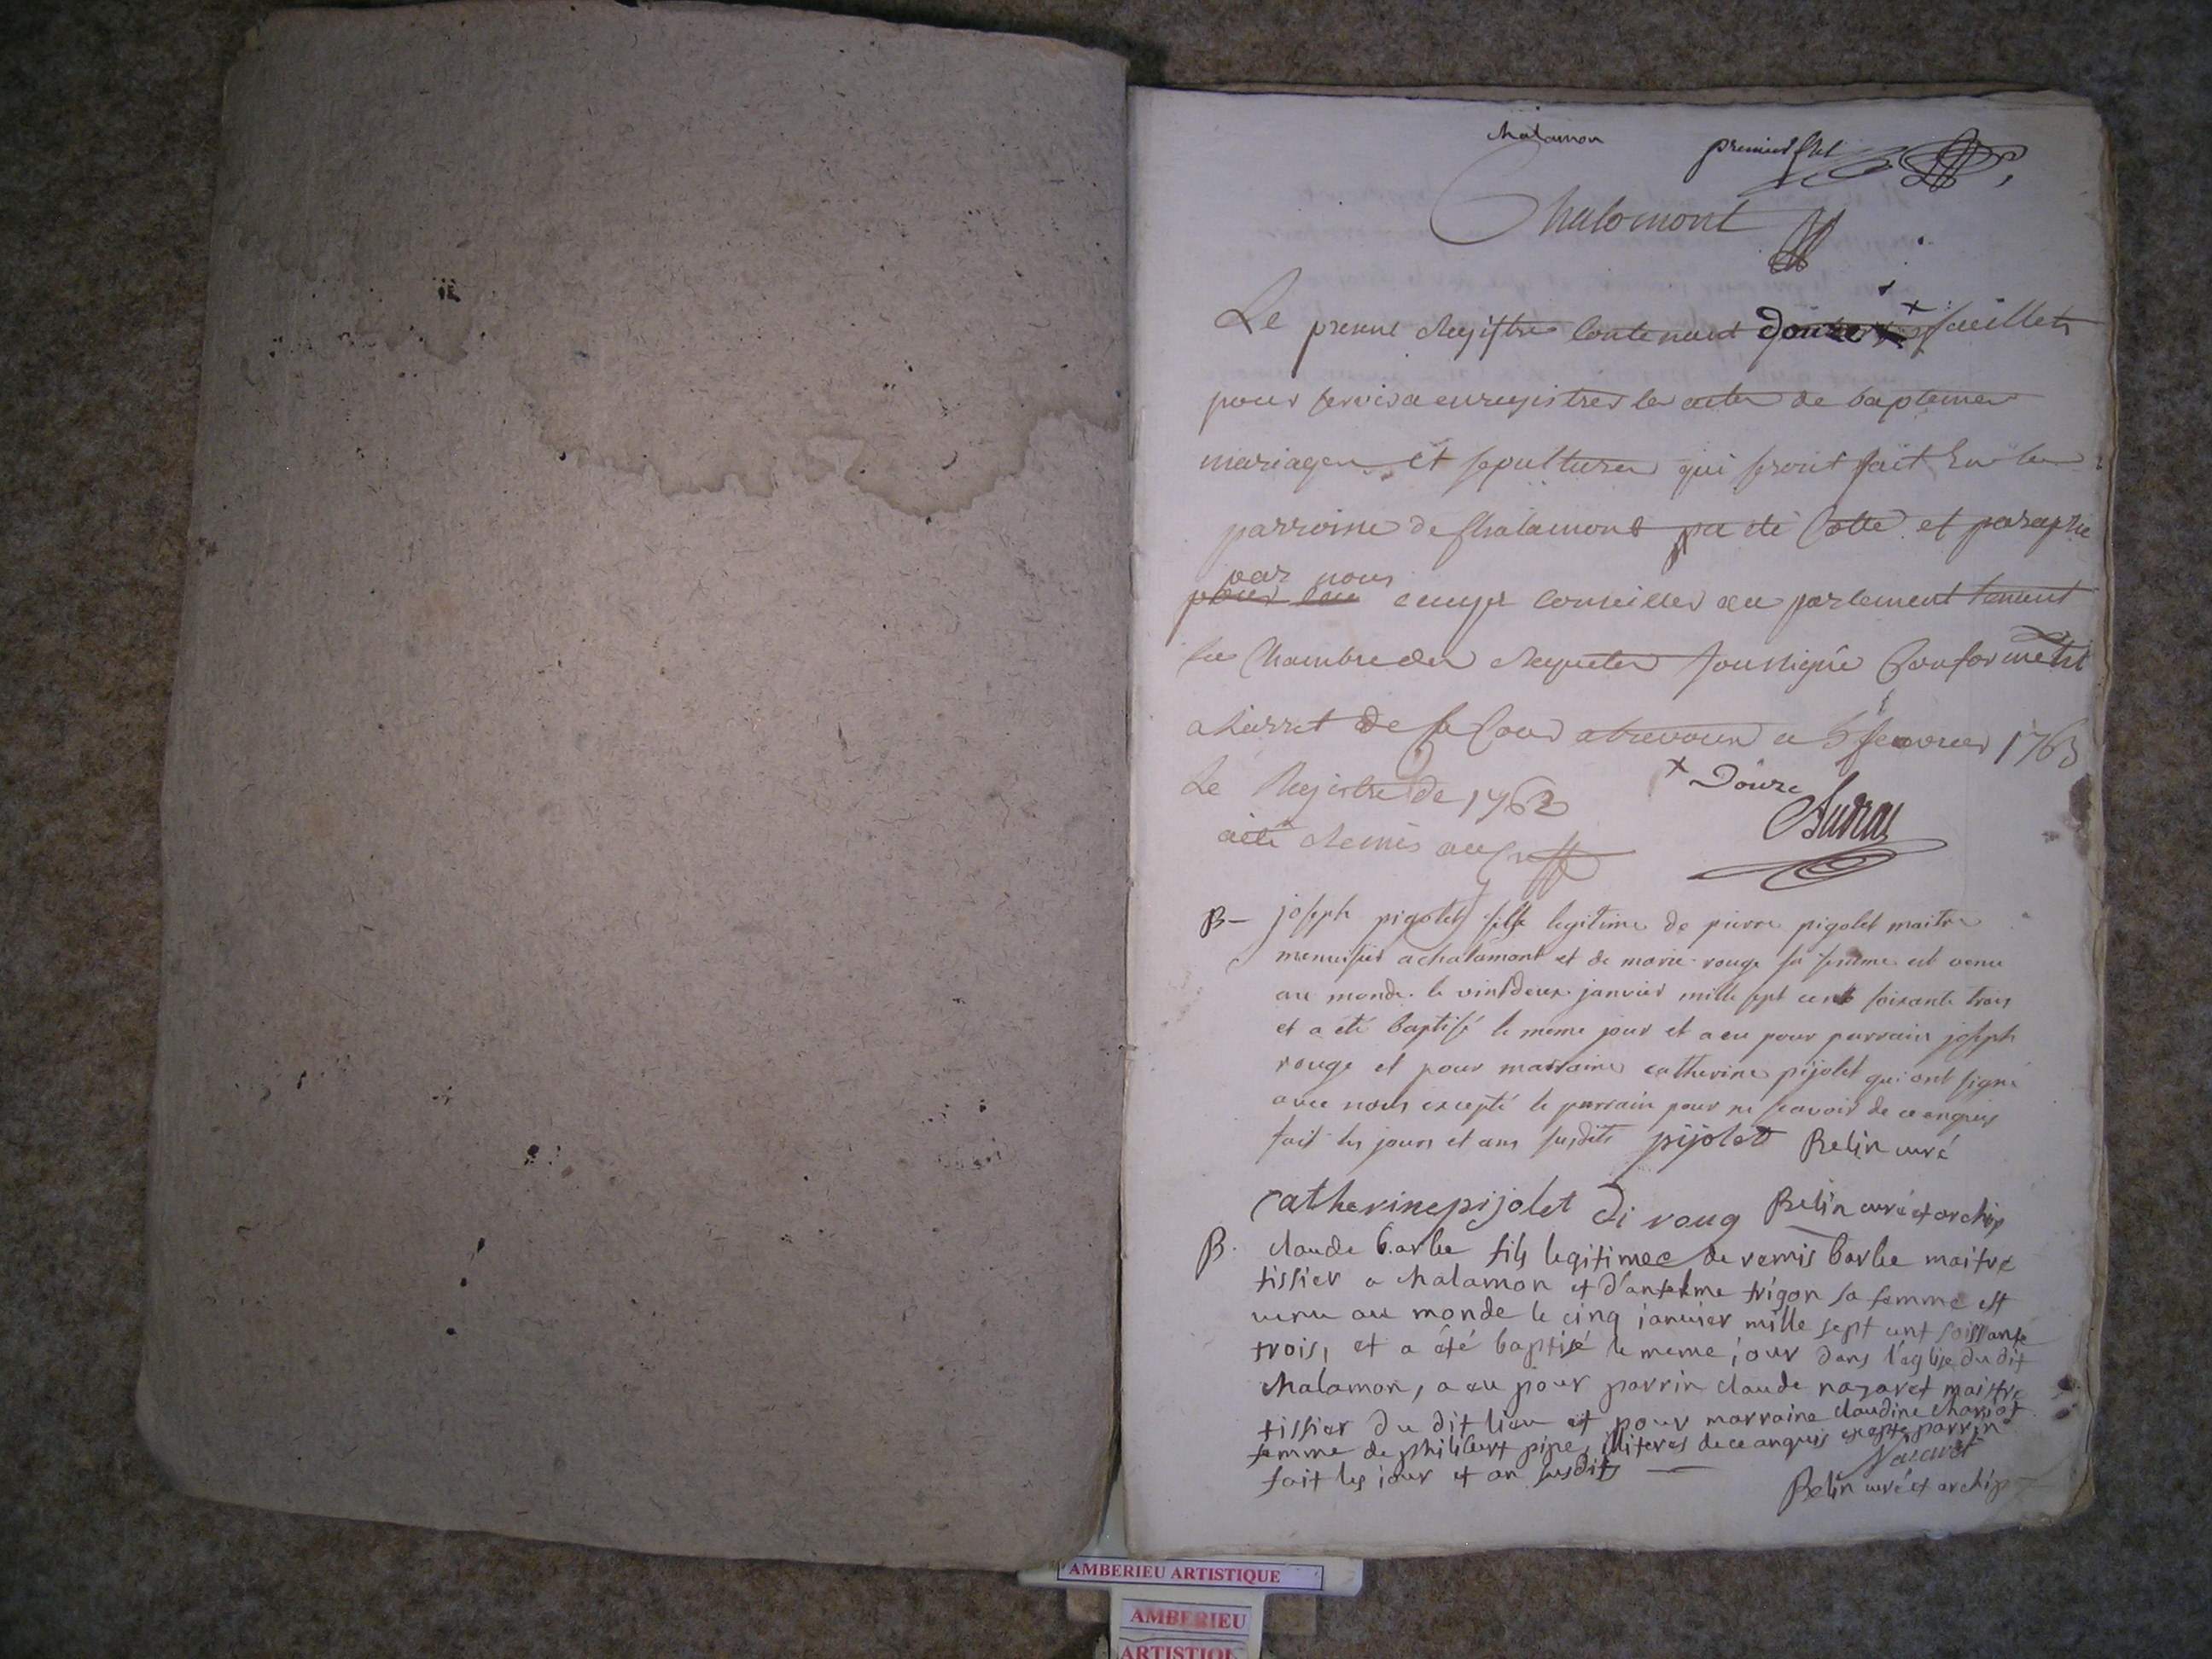 chalamon
premier
Chalamont
Le present Registre Contenant douze feuillets
pour servir a enregistrer les actes de baptemes
mariages et sepultures qui seront fait En la
parroisse de Chalamont a eté Cotté et paraphé
par nous
ecuyer Conseiller au parlement tenant
la Chambre des Requetes soussigné Conformemt
a l'arret de la Cour a trevoux ce 5 fevrier 1763
Le Registre de 1762
x Douze
a été Remis au Greffe
Audras
B- joseph pigolet fils legitime de pierre pigolet maitre
menuisier a chalamont et de marie rouge sa femme est venu
au monde le vintdeux janvier mille sept cent soixante trois
et a été baptisé le meme jour et a eu pour parrain joseph
rouge et pour marraine catherine pijolet qui ont signé
avec nous excepté le parrain pour ne scavoir de ce enquis
fait les jours et ans susdits pijolet Belin curé
catherine pijolet di roug Belin curé et archip
B. claude barbe fils legitime de remis barbe maitre
tissier a chalamon et d'antelme trigon sa femme est
venu au monde le cinq janvier mille sept cent soissante
trois, et a été baptisé le meme jour dans l'aglise du dit
chalamon, a eu pour parrin claude nazaret maistre
tissier du dit lieu et pour marraine claudine chariot
femme de philibert pipe, illiteres de ce anquis excepte parrin
fait les jour et an susdits
Nazaret
Belin curé et archip
AMBERIEU ARTISTIQUE
AMBERIEU
ARTISTIQUE